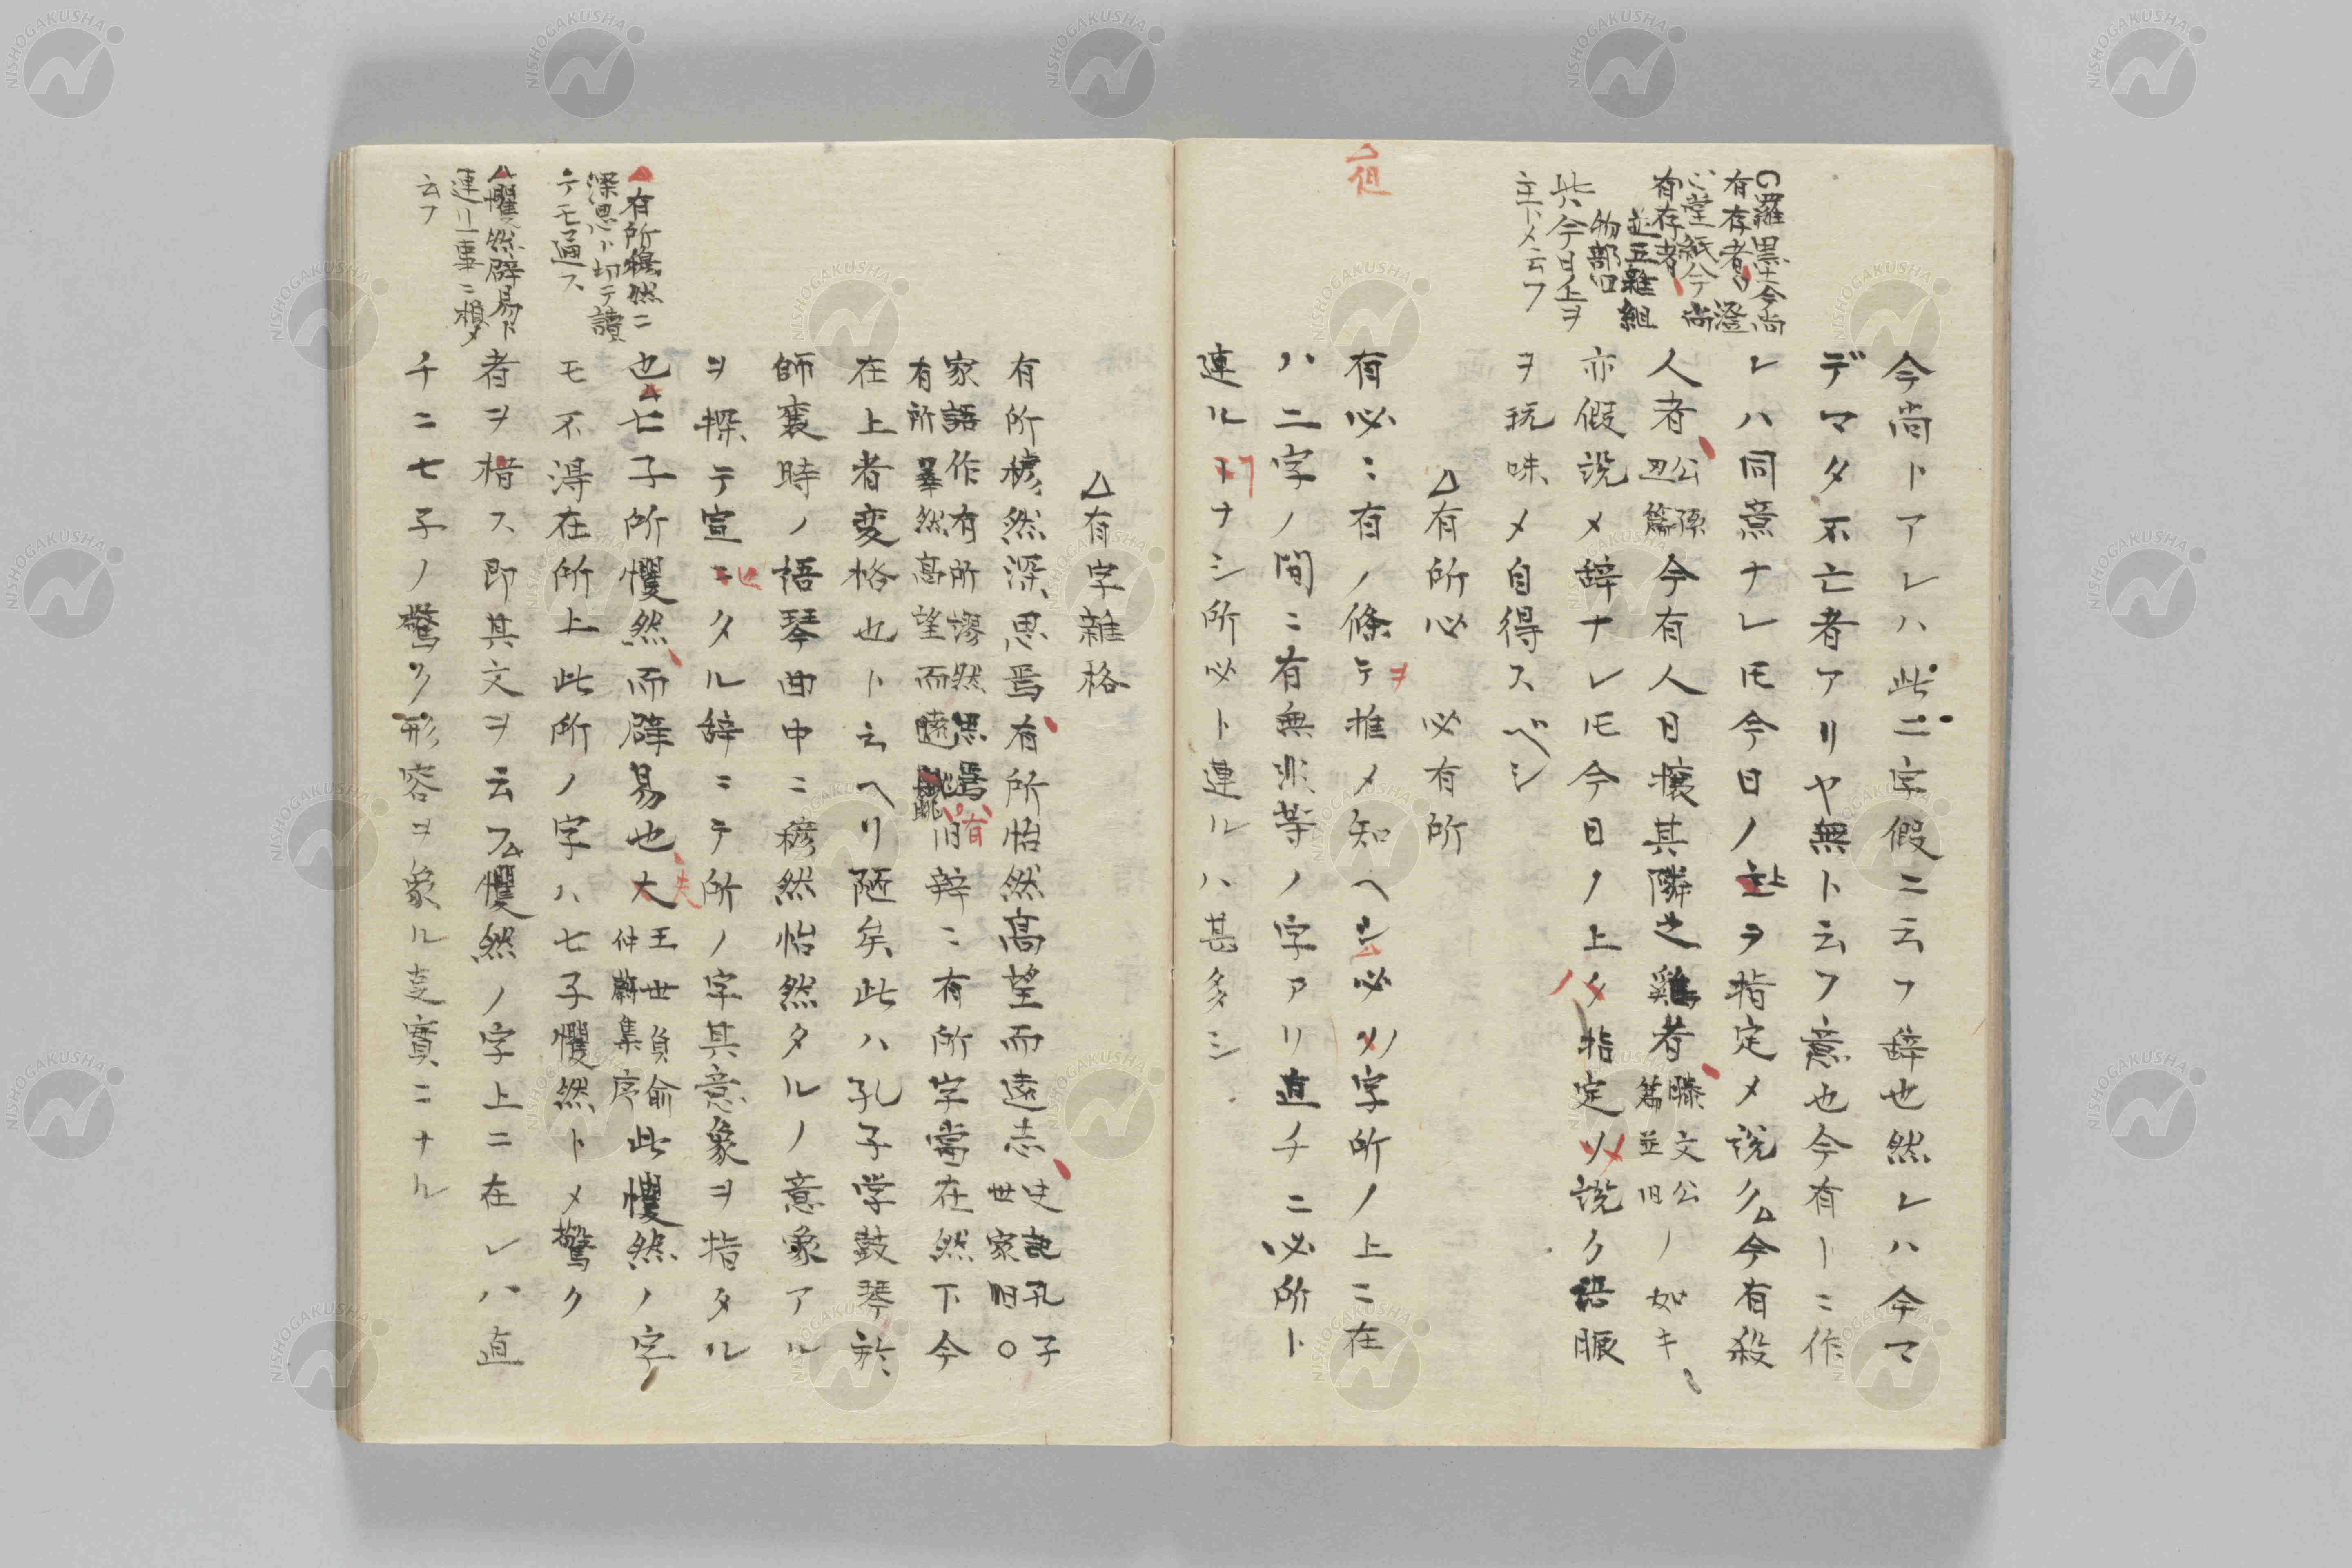 今尚トアレハ此二字假ニ云フ辞也然レハ今マ
デマタ不亡者アリヤ無ト云フ意也今有ーニ作
レハ同意ナレ𪜈今日ノ上ヲ指定メ説ク今有殺
人者公孫丑篇今有人日攘其隣之鶏者滕文公篇並旧ノ如キ
亦假説メ辞ナレ𪜈今日ノ上指定説ク語脈
ヲ玩味メ自得スベシ
△有所必 必有所
有必ニ有ノ條ヲ推メ知ヘシ必ソ字所ノ上ニ在
ハ二字ノ間ニ有無非等ノ字アリ直チニ必所ト
連ルナシ所必ト連ルハ甚多シ
G羅黒士今尚
有存者 澄
心堂紙今尚
有存者
並五雑組
物部旧
此今日上ヲ
主トメ云フ
△有字雜格
有所穆然深思焉有所怡然髙望而遠志史記孔子世家旧〇
家語作有所謬然思焉有所睪然髙望而遠眺旧辨ニ有所字當在然下今
在上者変格也ト云ヘリ陋矣此ハ孔子学鼓琴於
師襄時ノ語琴曲中ニ穆然怡然タルノ意象アル
ヲ探テ宣タル辞ニテ所ノ字其意象ヲ指タル
也七子所戄然而辟易也夫王世貞俞仲蔚集序此戄然ノ字
モ不淂在所上此所ノ字ハ七子戄然トメ驚ク
者ヲ楷ス即其文ヲ云フ戄然ノ字上ニ在レハ直
チニ七子ノ驚ク形容ヲ象ル支實ニナル
有所穆然ニ
深思ト切テ讀
テモ通ス
戄然辟易ト
連リ一事ニ槓メ
云フ
NISHOGAKUSHA